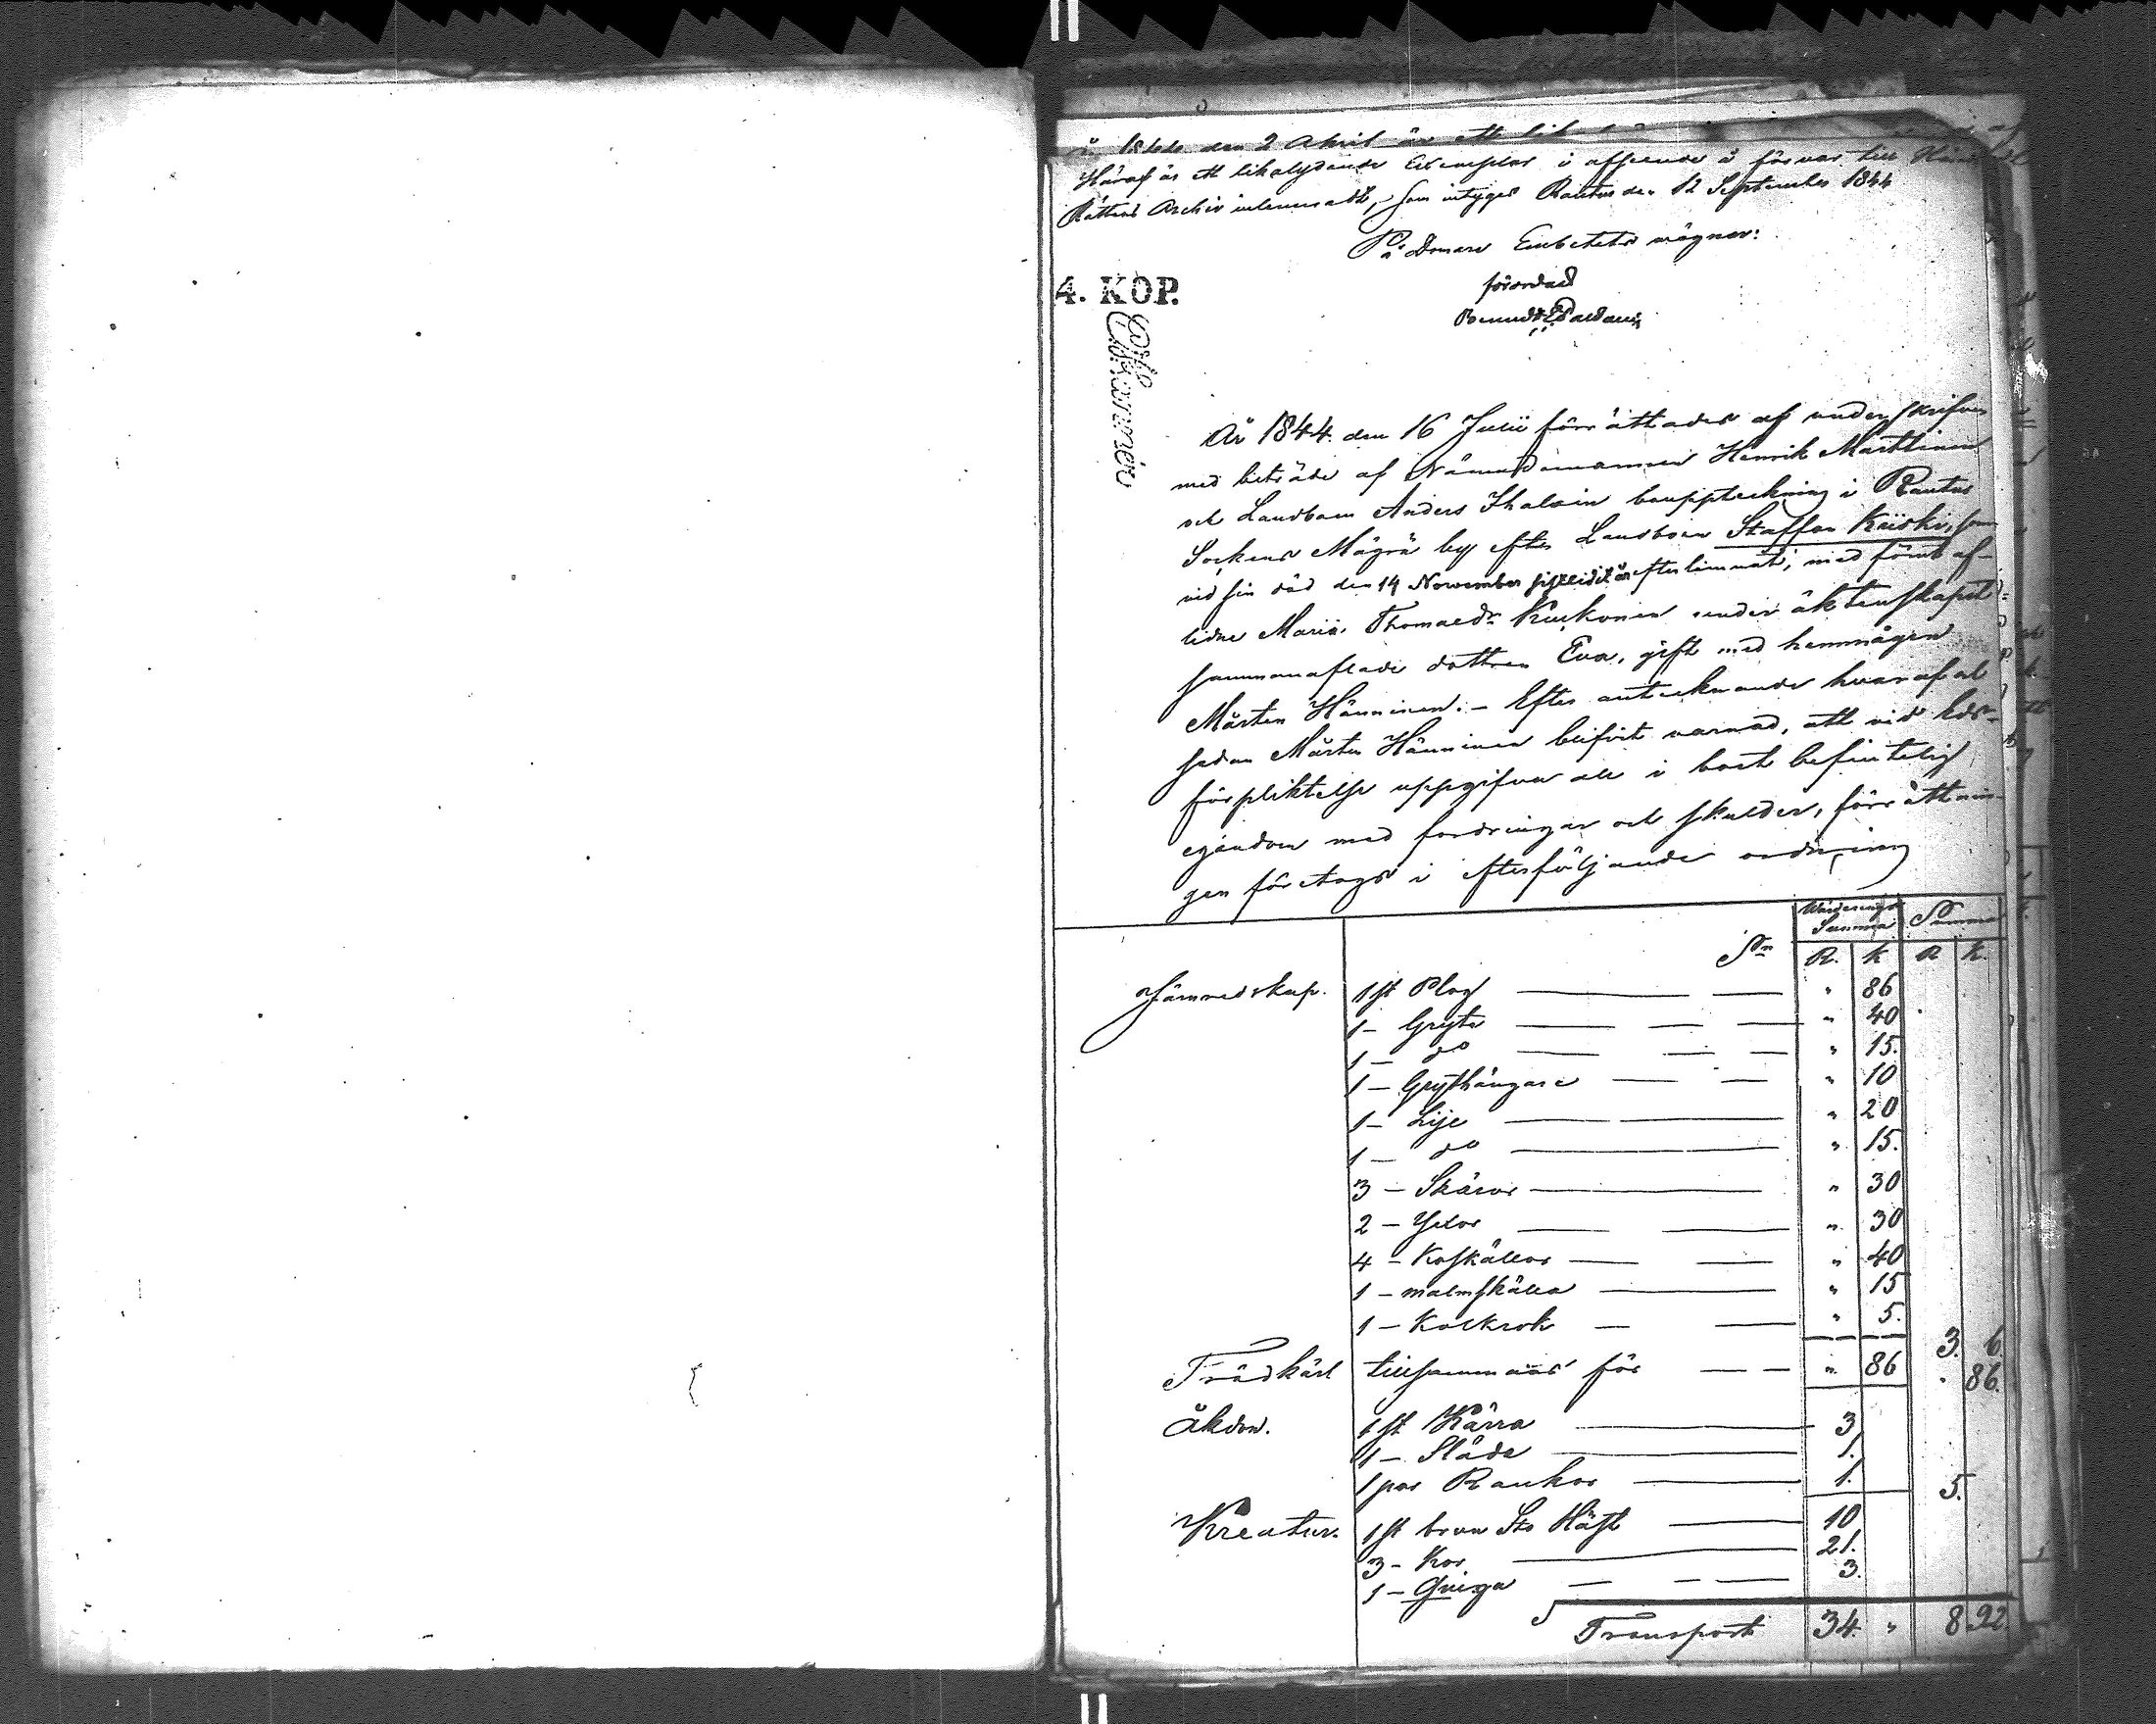 År 1844 den 2 April är ett
Häraf är ett likalydande Exemplar i afseende å förvar till
Rättens Archiv inlemnadt, som intygas Rautus den 12 September 1844
På Domare Embetets vägnar:
förordnad
4. KOP.
År 1844 den 16 Julii förrättades af underskrifven
med biträde af Nämndemannen Henrik Marttinen
och Landboen Anders Ihalain bouppteckning i Rautus
Sockens Mägrä by efter Landboen Staffan Kiiski, som
vid sin död den 14 November sistlidit år efterlemnat, med förut af-
lidne Maria Thomaedr Kuckonen under äktenskapet
sammanaflade dottren Eva, gift med hemmågen
Mårten Hänninen. – Efter antecknande hvaraf och
sedan Mårten Hänninen blifvit varnad, att vid Eds-
förpliktelse uppgifva all i boet befintelig
egendom med fordringar och skulder, förrättnin-
gen företogs i efterföljande ordning
Wärderings Summa Summa
Sr R. K R K.
Järnredskap. 1 st Plog " 86
1 – Gryta " 40
1 – do " 15.
1 – Grythängare " 10
1 – Lije " 20
1 – do " 15.
3 – Skäror " 30
2 – Yxor " 30
4 – Koskällor " 40
1 – malmskälla " 15
1 – Kolkrok " 5. 3. 6.
Trädkärl tillsammans för " 86 " 86.
Åkdon. 1 st Kärra 3
1 – Släde 1.
1 par Rankor 1. 5.
Kreatur. 1 st brun Sto Häst 10
3 – Kor 21.
1 – Qviga 3.
Transport 34. " 8 92.